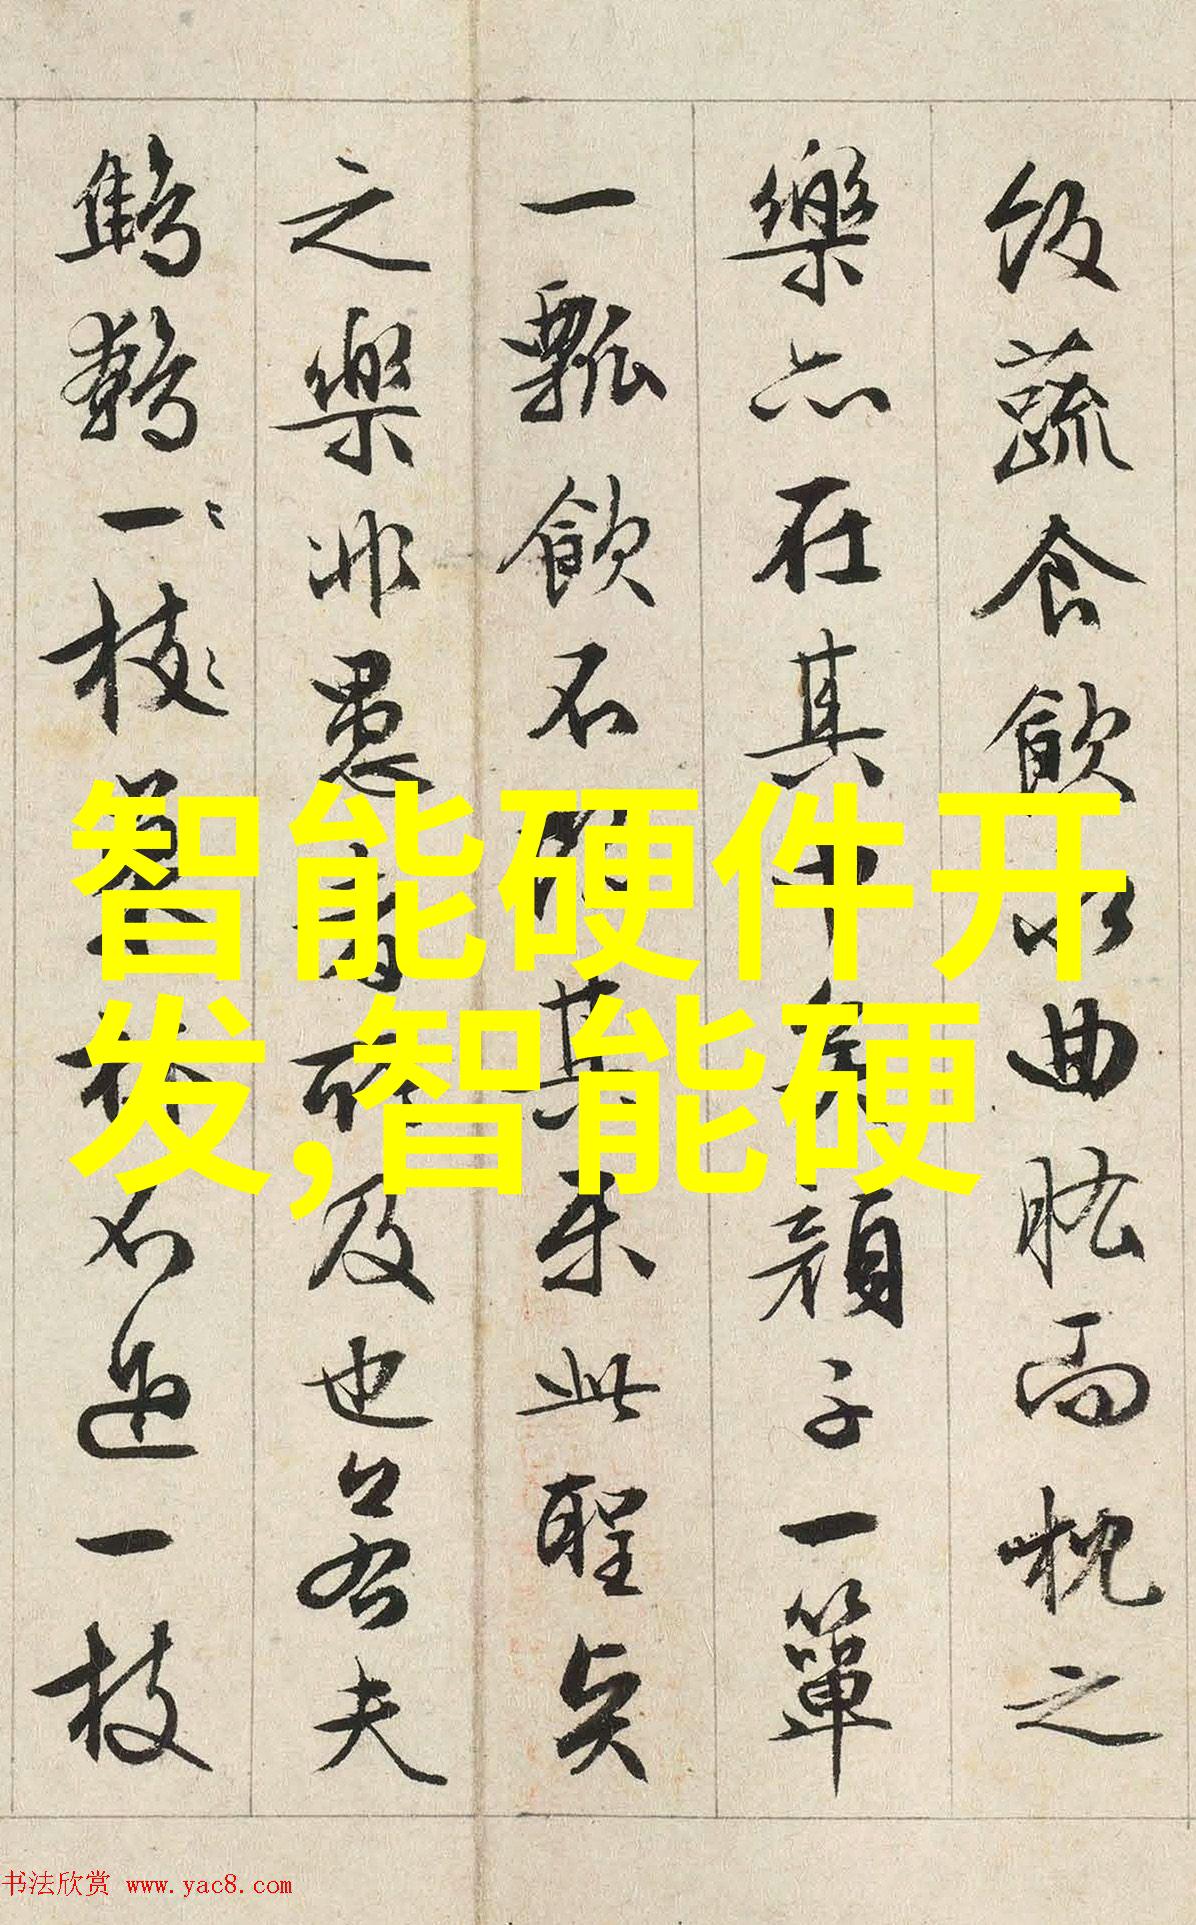 飯蔬食飲水曲肱而枕之
樂亦在其中矣顏子一簞
一瓢飲不改其樂此聖賢
之樂非愚者所及也若夫
鷦鷯一枝巢林不過一枝
智能硬件开
发,智能硬
书法欣赏 www.yac8.com